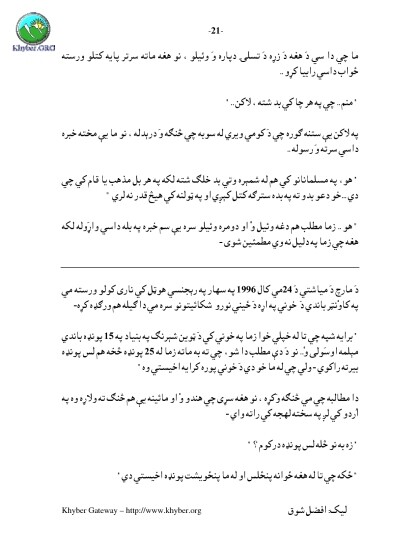 -21-
Khyber.ORG
ما چي دا سي دَ هغه دَ زړه دَ تسلۍ دپاره وَ وئيلو ، نو هغه ماته سرتر پايه کتلو ورسته
ځواب داسي راکړو ..
"منم .. چي په هر چا کي بد شته ، لاکن .."
په لاکن يې ستنه ګوره چي دَ کومي ويري له سوبه چي څنګه وَ درېدله ، نو ما يې مخته خبره
داسي سرته وَ رسوله ..
"هو ، په مسلمانانو کي هم له شمېره وتي بد خلګ شته لکه په هر بل مذهب يا قام کي چي
دي ... خو دعو بدو ته په بده سترګه کتل کېږي او په ټولنه کي هيڅ قدر نه لري "
"هو .. زما مطلب هم دغه وئيل وْ او دومره وئيلو سره يې سم خبره په بله داسي واړوله لکه
هغه چي زما په دليل نه وي مطمئين شوی-
دَ مارچ دَ مياشتي دَ 24مي کال 1996 په سهار په ريجنسي هوټل کي ناری کولو ورسته مي
په کاؤنټر باندي دَ خوني په اړه دَ ځيني نورو شکائيتونو سره مي دا ګيله هم ورګډه کړه-
"برايه شپه چي تا له خپلي خوا زما په خوني کي دَ ټوين شېرنګ په بنياد په 15 پونډه باندي
مېلمه اوسَولی وْ.. نو دَ دې مطلب دا شو ، چي ته به ماته زما له 25 پونډه څخه هم لس پونډه
بيرته راکوې- ولي چي له ما خو دي دَ خوني پوره کرايه اخيستي وه "
دا مطالبه چي مي څنګه وکړه ، نو هغه سړی چي هندو وْ او مائينه يې هم څنګ ته ولاړه وه په
اُردو کي لږ په سخته لهجه کي راته واي-
"زه به نو څله لس پونډه درکوم ؟ "
"ځکه چي تا له هغه ځوانه پنځلس او له ما پنځويشت پونډه اخيستي دي "
Khyber Gateway – http://www.khyber.org
ليک: افضل شوق